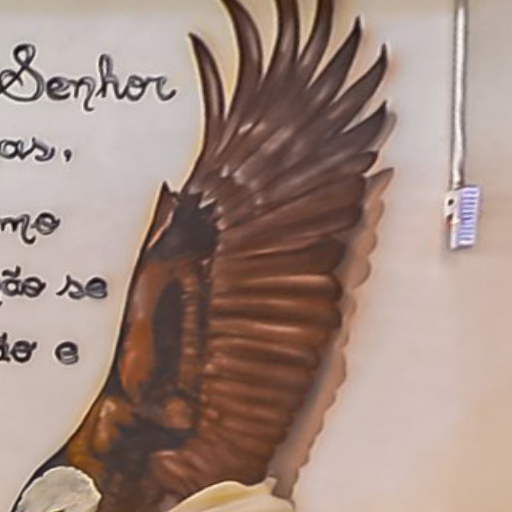 Senhor
as,
mo
ão se
do e